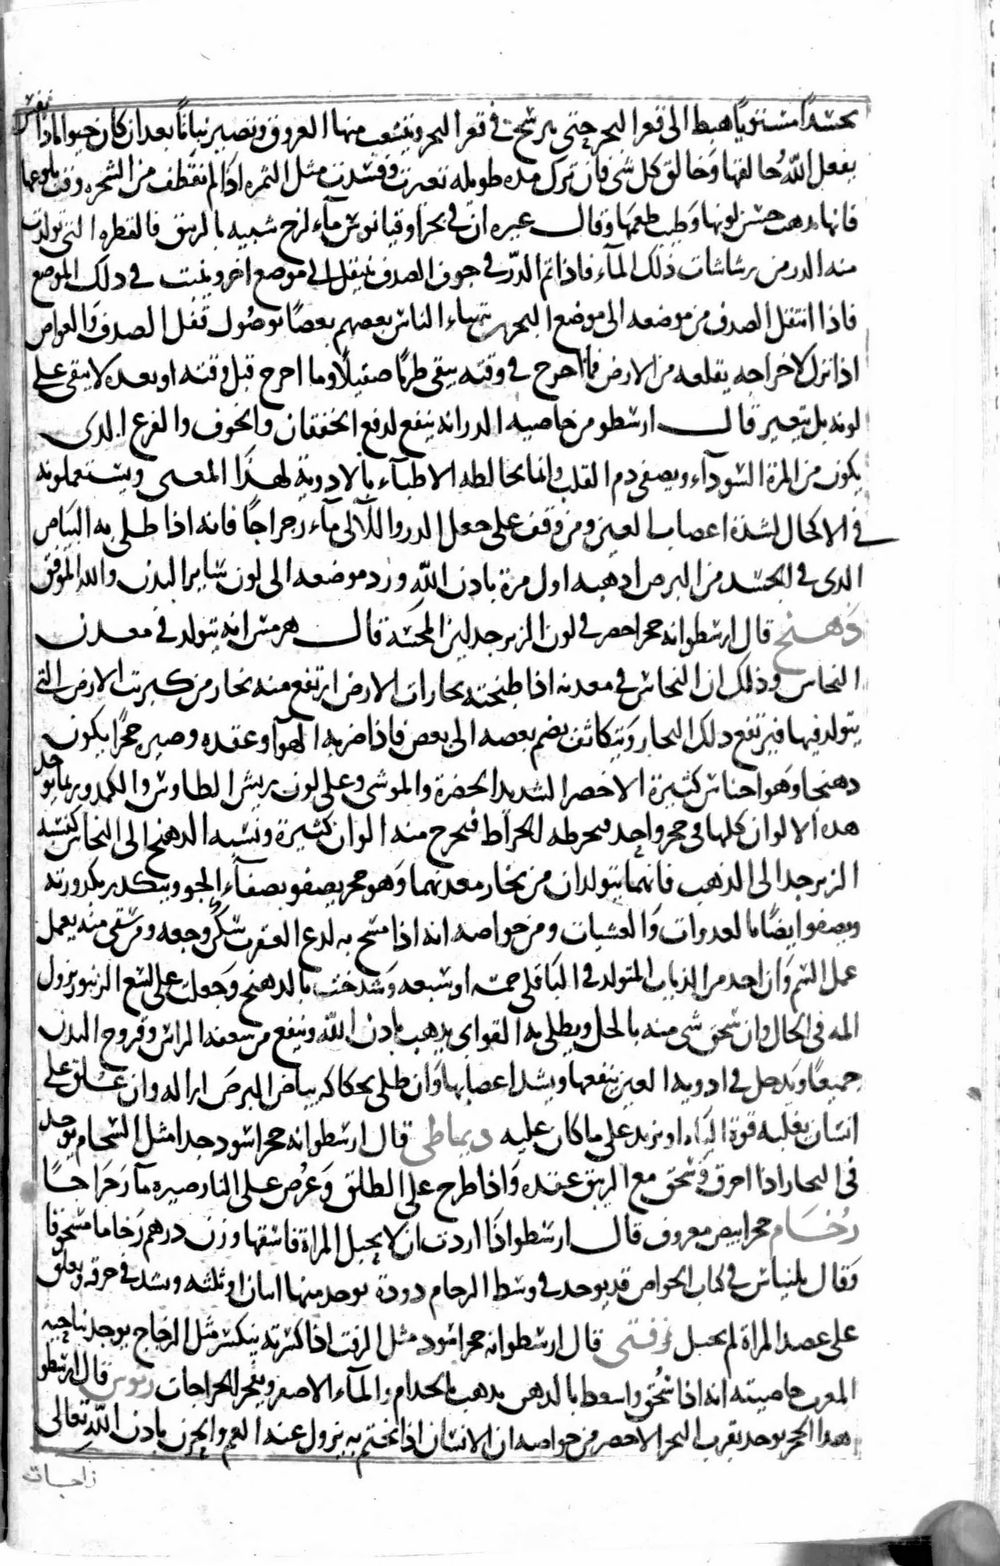 بجسدا مستويا هبط الى قعر البحر حتى يرشخ في قعر البحر ويتشعب منها العروق وتصير نباتا بعد ان كان حيوانا
بفعل الله خالقها وخالق كل شى فان ترك مده طويله تغيرت وفسدت مثل الثمره اذا لم تقطف من الشجره وقت بلوغها
فانها يذهب حسن لونها وطيب طعمها وقال غيره ان في بحر اوقيانوس ماء لزج شبيه بالزيبق فالقطره التى تولدت
منه الدر من رشاشات ذلك الماء فاذا تم الدر في جوف الصدف ينتقل الى موضع اخر وينبت في ذلك الموضع
فاذا انتقل الصدف من موضعه الى موضع البحر يتهياء الناس بعضهم بعضا بوصول قفل الصدف والغواص
اذا نزل لاخراجه يقلعه من الارض فما اخرج في وقته يبقى طريا صقيلا وما اخرج قبل وقته او بعده لا يبقى على
لونه بل يتغير قال ارسطو من خاصيه الدر انه ينفع لدفع الخفقان والخوف والفزع الذى
يكون من المرة السوداء ويصفى دم القلب وانما يخالطه الاطباء بالادوية لهذا المعنى ويستعملونه
في الاكحال لشدة اعصاب العين ومن وقف على حعل الدر واللآلى ماء رجراجا فانه اذا طلى به البياض
الذى في الجسد من البرص اذهبه اول مرة باذن الله ورد موضعه الى لون ساير البدن والله الموفق
دهنج قال ارسطو انه حجر اخضر في لون الزبرجد لين المجسة قال هرمس انه يتولد في معدن
النحاس وذلك ان النحاس في معدنه اذا طبخته بخارات الارض ارتفع منه بخار من كبريت الارض التى
يتولد فيها فيرتفع ذلك البخار ويتكاثف بضم بعضه الى بعض فاذا ضربه الهوآ وعقده وصيره حجرا يكون
دهنجا وهو اجناس كثيرة الاخضر الشديد الخضرة والموشى وعلى لون ريش الطاوس والكمد وربما يوجد
هذه الالوان كلها في حجر واحد فيخرطه الخراط فيخرج منه الوان كثيرة ونسبه الدهنج الى النحاس كنسبه
الزبرجد الى الذهب فانهما يتولدان من بخار معدنهما وهو حجر يصفو بصفاء الجو ويتكدر بكدورته
ويصفو ايضا بالغدوات والعشيات ومن خواصه انه اذا مسح به لدغ العقرب سكن وجعه ومن سقى منه يعمل
عمل السم وان اخذ من الذباب المتولد في الباقلى خمسة او سبعه وشدخت بالدهنج وجعلت على لسع الزنبور يزول
المه في الحال وان سحق شى منه بالخل ويطلى به القوابى يذهب باذن الله وينفع من سعفه الراس وقروح البدن
جميعا ويدخل في ادويه العين ينفعها ويشد اعصابها وان طلى بحكاكه بياض البرص ازاله وان علق على
انسان يغلبه قوة الباه او يزيد على ما كان عليه ديماطى قال ارسطو انه حجر اسود جدا مثل السخام يوجد
في البحار اذا احرق وسحق مع الزيبق عقده واذا طرح على الطلق وعرض على النار صيره ماء رجراجا
رخام حجر ابيض معروف قال ارسطو اذا اردت ان لا يحبل المراة فاسقها وزن درهم رخاما مسحوقا
وقال بليناس في كتاب الخواص قد يوجد في وسط الرخام دودة يوخذ منها اثنان او ثلثه ويشد في خرقه ويعلق
على عضد المراة لم يحبل قال ارسطو انه حجر اسود مثل الزفت اذا كسرته يتكسر مثل الزجاج يوجد بناحيه
المغرب خاصيته انه اذا سحق واسعط بالدهن يذهب بالجذام والماء الاصفر ويفجر الجراحات قال ارسطو
هذا الحجر يوجد بقرب البحر الاخضر من خواصه ان الانسان اذا تختم به يزول عنه الغم والحزن باذن الله تعالى
زاجات